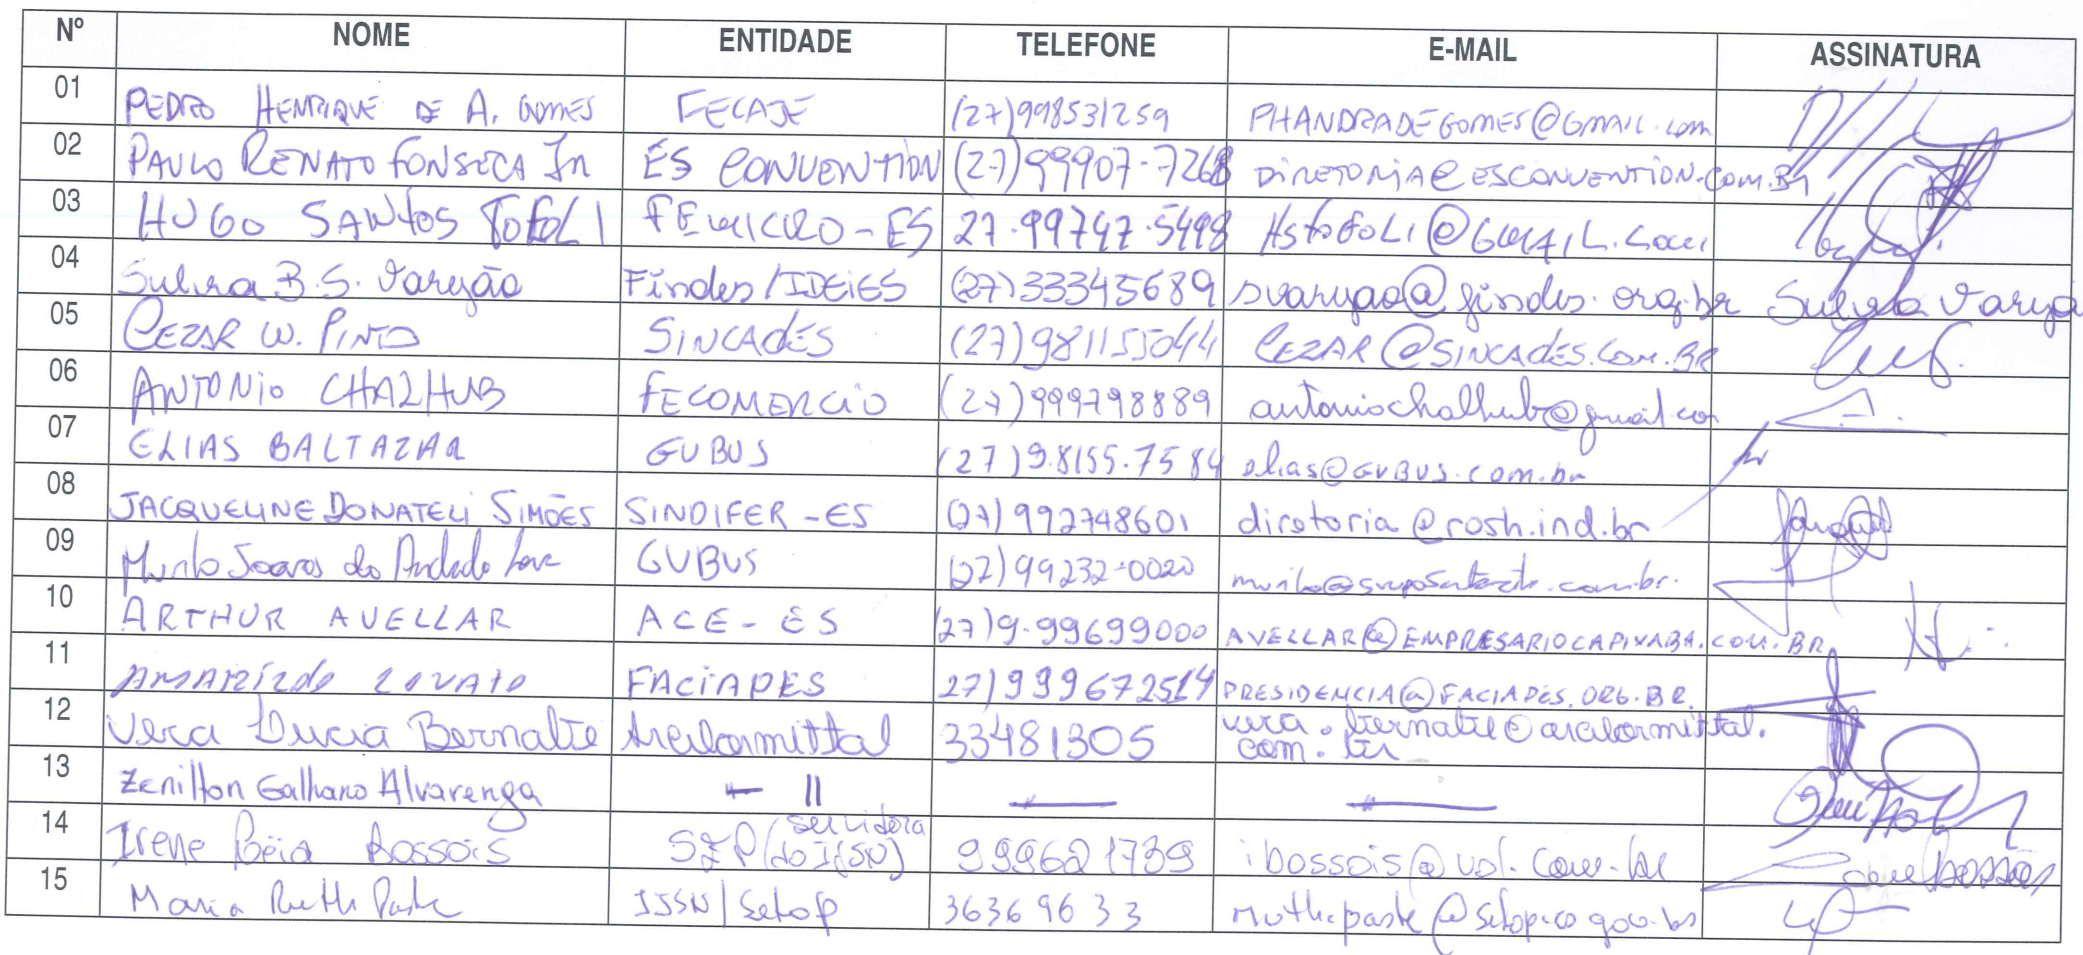 Nº NOME ENTIDADE TELEFONE E-MAIL ASSINATURA
01 PEDRO HENRIQUE DE A. GOMES FECAJE (27)998531259 PHANDRADEGOMES@GMAIL.com
02 PAULO RENATO FONSECA Jn ES CONVENTION (27)99907-7268 DIRETORIA@ESCONVENTION.COM.BR
03 HUGO SANTOS TOFOLI FEMICRO-ES 27.99747.5498 HSTOFOLI@GMAIL.COM
04 B.S. Varejão Findes/IDEIES (27)33345689 svarejao@findes.org.br Varejão
05 CEZAR W. PINTO SINCADES (27)981155044 CEZAR@SINCADES.COM.BR
06 ANTONIO CHALHUB FECOMERCIO (27)999798889 antoniochalhub@gmail.com
07 ELIAS BALTAZAR GVBUS (27)9.8155.7584 elias@GVBUS.com.br
08 JACQUELINE DONATELI SIMÕES SINDIFER-ES (27)992748601 diretoria@rosh.ind.br
09 Murilo Soares de Andrade GVBUS (27)99232-0020
10 ARTHUR AVELLAR ACE-ES (27)9.99699000 AVELLAR@EMPRESARIOCAPIXABA.COM.BR
11 AMARILDO LOVATO FACIAPES 27)999672514 PRESIDENCIA@FACIAPES.ORG.BR
12 Vera Lucia Bernabie Arcelormittal 33481305 vera.bernabie@arcelormittal.
com.br
13 Zenilton Galhano Alvarenga — 11 — —
servidora
14 Irene Béia Bossois SEP(do IJSN) 999621739 ibossois@uol.com.br Bossois
15 Maria Ruth Paste IJSN/Setop 36369633